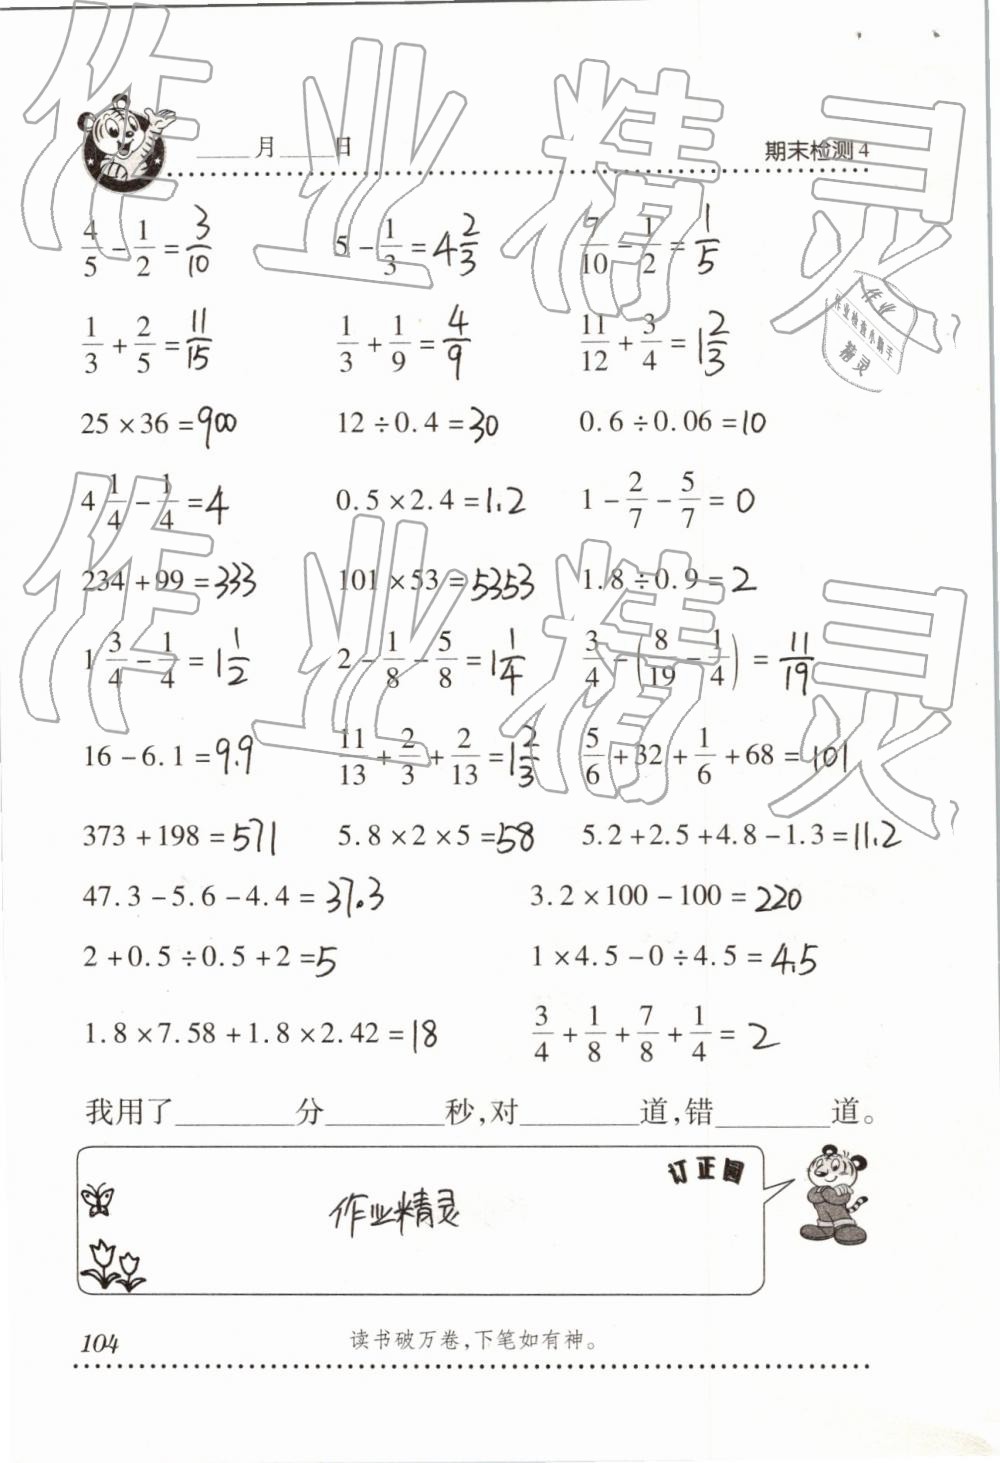 作业精灵
____月____日 期末检测 4
4/5 - 1/2 = 3/10 5 - 1/3 = 4 2/3 7/10 - 1/2 = 1/5
1/3 + 2/5 = 11/15 1/3 + 1/9 = 4/9 11/12 + 3/4 = 1 2/3
作业
作业检查小助手
精灵
25 × 36 = 900 12 ÷ 0.4 = 30 0.6 ÷ 0.06 = 10
4 1/4 - 1/4 = 4 0.5 × 2.4 = 1.2 1 - 2/7 - 5/7 = 0
作业精灵
234 + 99 = 333 101 × 53 = 5353 1.8 ÷ 0.9 = 2
1 3/4 - 1/4 = 1 1/2 2 - 1/8 - 5/8 = 1 1/4 3/4 - (8/19 - 1/4) = 11/19
16 - 6.1 = 9.9 11/13 + 2/3 + 2/13 = 1 2/3 5/6 + 32 + 1/6 + 68 = 101
373 + 198 = 571 5.8 × 2 × 5 = 58 5.2 + 2.5 + 4.8 - 1.3 = 11.2
47.3 - 5.6 - 4.4 = 37.3 3.2 × 100 - 100 = 220
2 + 0.5 ÷ 0.5 + 2 = 5 1 × 4.5 - 0 ÷ 4.5 = 4.5
1.8 × 7.58 + 1.8 × 2.42 = 18 3/4 + 1/8 + 7/8 + 1/4 = 2
我用了________分________秒,对________道,错________道。
订正园
作业精灵
104 读书破万卷,下笔如有神。